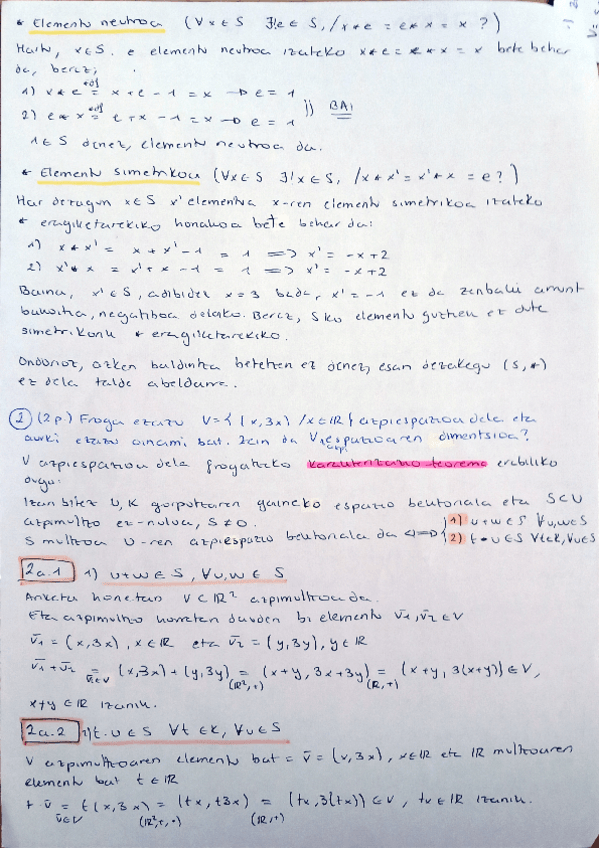 * Elementu neutroa (∀x∈S ∃!e∈S, /x*e = e*x = x ?)
Hartu, x∈S. e elementu neutroa izateko x*e = e*x = x bete behar
da, beraz;
1) x*e =(def) x+e-1 = x → e = 1
2) e*x =(def) e+x-1 = x → e = 1 }} BAI
1∈S denez, elementu neutroa da.
* Elementu simetrikoa (∀x∈S ∃!x'∈S, /x*x' = x'*x = e?)
Har dezagun x∈S x' elementua x-ren elementu simetrikoa izateko
* eragiketarekiko honakoa bete behar da:
1) x*x' = x+x'-1 = 1 ⟹ x' = -x+2
2) x'*x = x'+x-1 = 1 ⟹ x' = -x+2
Baina, x'∈S, adibidez x=3 bada, x'=-1 ez da zenbaki arrunt
bakoitia, negatiboa delako. Beraz, S-ko elementu guztiek ez dute
simetrikorik * eragiketarekiko.
Ondorioz, azken baldintza betetzen ez denez, esan dezakegu (S,*)
ez dela talde abeldarra.
2 (2p) Froga ezazu V={(x,3x) /x∈ℝ} azpiespazioa dela eta
aurki ezazu oinarri bat. Zein da V azpiespazioaren dimentsioa?
V azpiespazioa dela frogatzeko karakterizazio-teorema erabiliko
dugu:
Izan bitez U, K gorputzaren gaineko espazio bektoriala eta S⊂U
azpimultzo ez-nulua, S≠0.
S multzoa U-ren azpiespazio bektoriala da ⟺ { 1) u+w∈S ∀u,w∈S
2) t·u∈S ∀t∈K, ∀u∈S
2a.1 1) u+w∈S, ∀u,w∈S
Ariketa honetan V⊂ℝ² azpimultzoa da.
Eta azpimultzo horretan dauden bi elementu v̄1, v̄2∈V
v̄1 = (x,3x), x∈ℝ eta v̄2 = (y,3y), y∈ℝ
v̄1+v̄2 =(v̄∈V) (x,3x)+(y,3y) =(ℝ²,+) (x+y, 3x+3y) =(ℝ,+) (x+y, 3(x+y))∈V,
x+y∈ℝ izanik.
2a.2 2) t·u∈S ∀t∈K, ∀u∈S
V azpimultzoaren elementu bat = v̄ = (x,3x), x∈ℝ eta ℝ multzoaren
elementu bat t∈ℝ
t·v̄ =(v̄∈V) t(x,3x) =(ℝ²,+,·) (tx, t3x) =(ℝ,+) (tx, 3(tx))∈V, tx∈ℝ izanik.